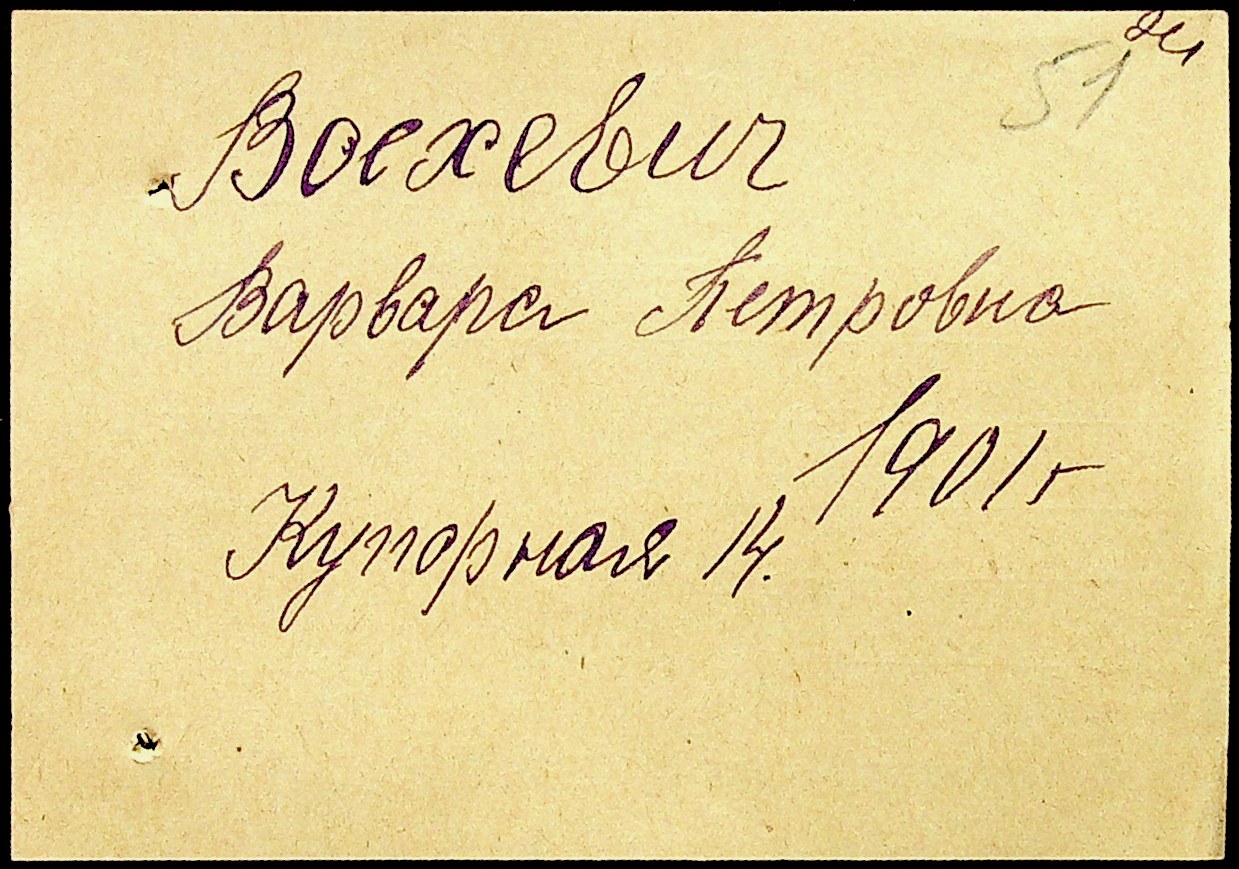 51
Восхевич
Варвара Петровна
1901 г
Купорная 14.